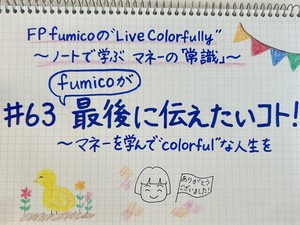 FP fumicoの“Live Colorfully”
～ノートで学ぶ マネーの「常識」～
fumicoが
#63 最後に伝えたいコト!
～マネーを学んで“colorful”な人生を
ありがとう
ございました!